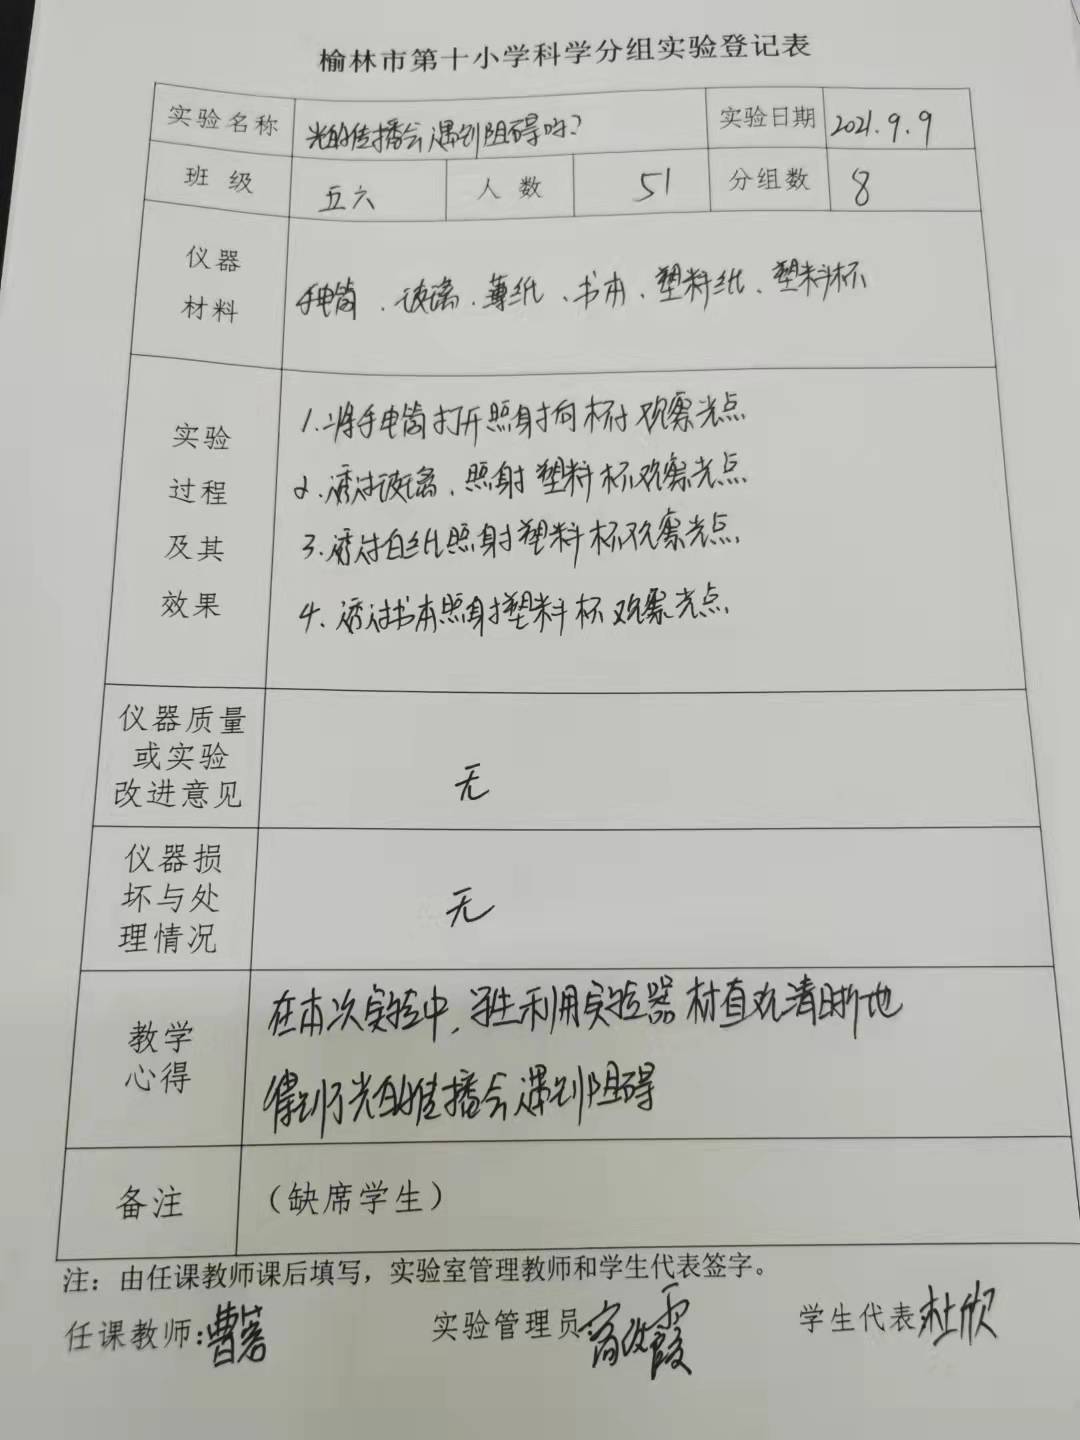 榆林市第十小学科学分组实验登记表
实验名称 光的传播会遇到阻碍吗? 实验日期 2021.9.9
班级 五六 人数 51 分组数 8
仪器
材料
手电筒、玻璃、薄纸、书本、塑料纸、塑料杯
实验
过程
及其
效果
1.将手电筒打开照射向杯子观察光点
2.透过玻璃、照射塑料杯观察光点
3.透过白纸照射塑料杯观察光点.
4.透过书本照射塑料杯观察光点.
仪器质量
或实验
改进意见
无
仪器损
坏与处
理情况
无
教学
心得
在本次实验中,学生利用实验器材直观清晰地
得到了光的传播会遇到阻碍
备注 （缺席学生）
注：由任课教师课后填写，实验室管理教师和学生代表签字。
任课教师: 曹 实验管理员: 霞 学生代表 杜欣